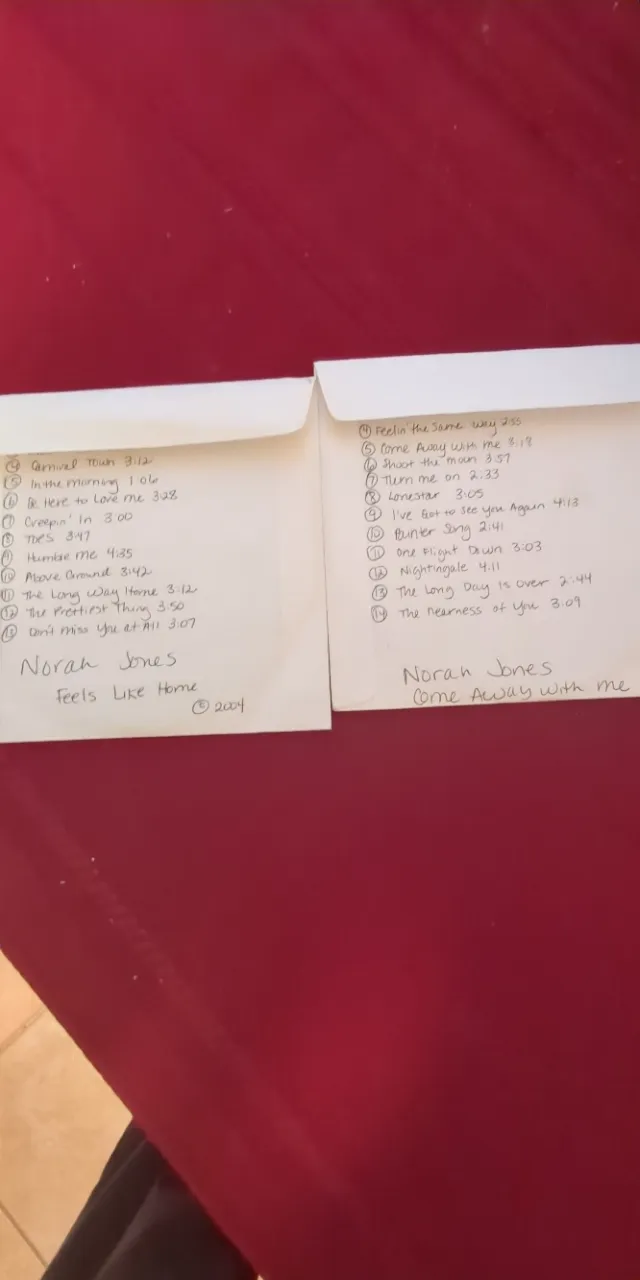 ④ Carnival Town 3:12
⑤ In the Morning 1 06
⑥ Be Here to Love me 3:28
⑦ Creepin' In 3 00
⑧ Toes 3:47
⑨ Humble me 4:35
⑩ Above Ground 3:42
⑪ The Long Way Home 3:12
⑫ The Prettiest Thing 3:50
⑬ Don't Miss You at All 3:07
Norah Jones
Feels Like Home
© 2004
④ Feelin' the Same Way 2:55
⑤ Come Away With me 3:18
⑥ Shoot the moon 3:57
⑦ Turn me on 2:33
⑧ Lonestar 3:05
⑨ I've Got to See You Again 4:13
⑩ Painter Song 2:41
⑪ One Flight Down 3:03
⑫ Nightingale 4:11
⑬ The Long Day Is Over 2:44
⑭ The Nearness of You 3:09
Norah Jones
Come Away With me